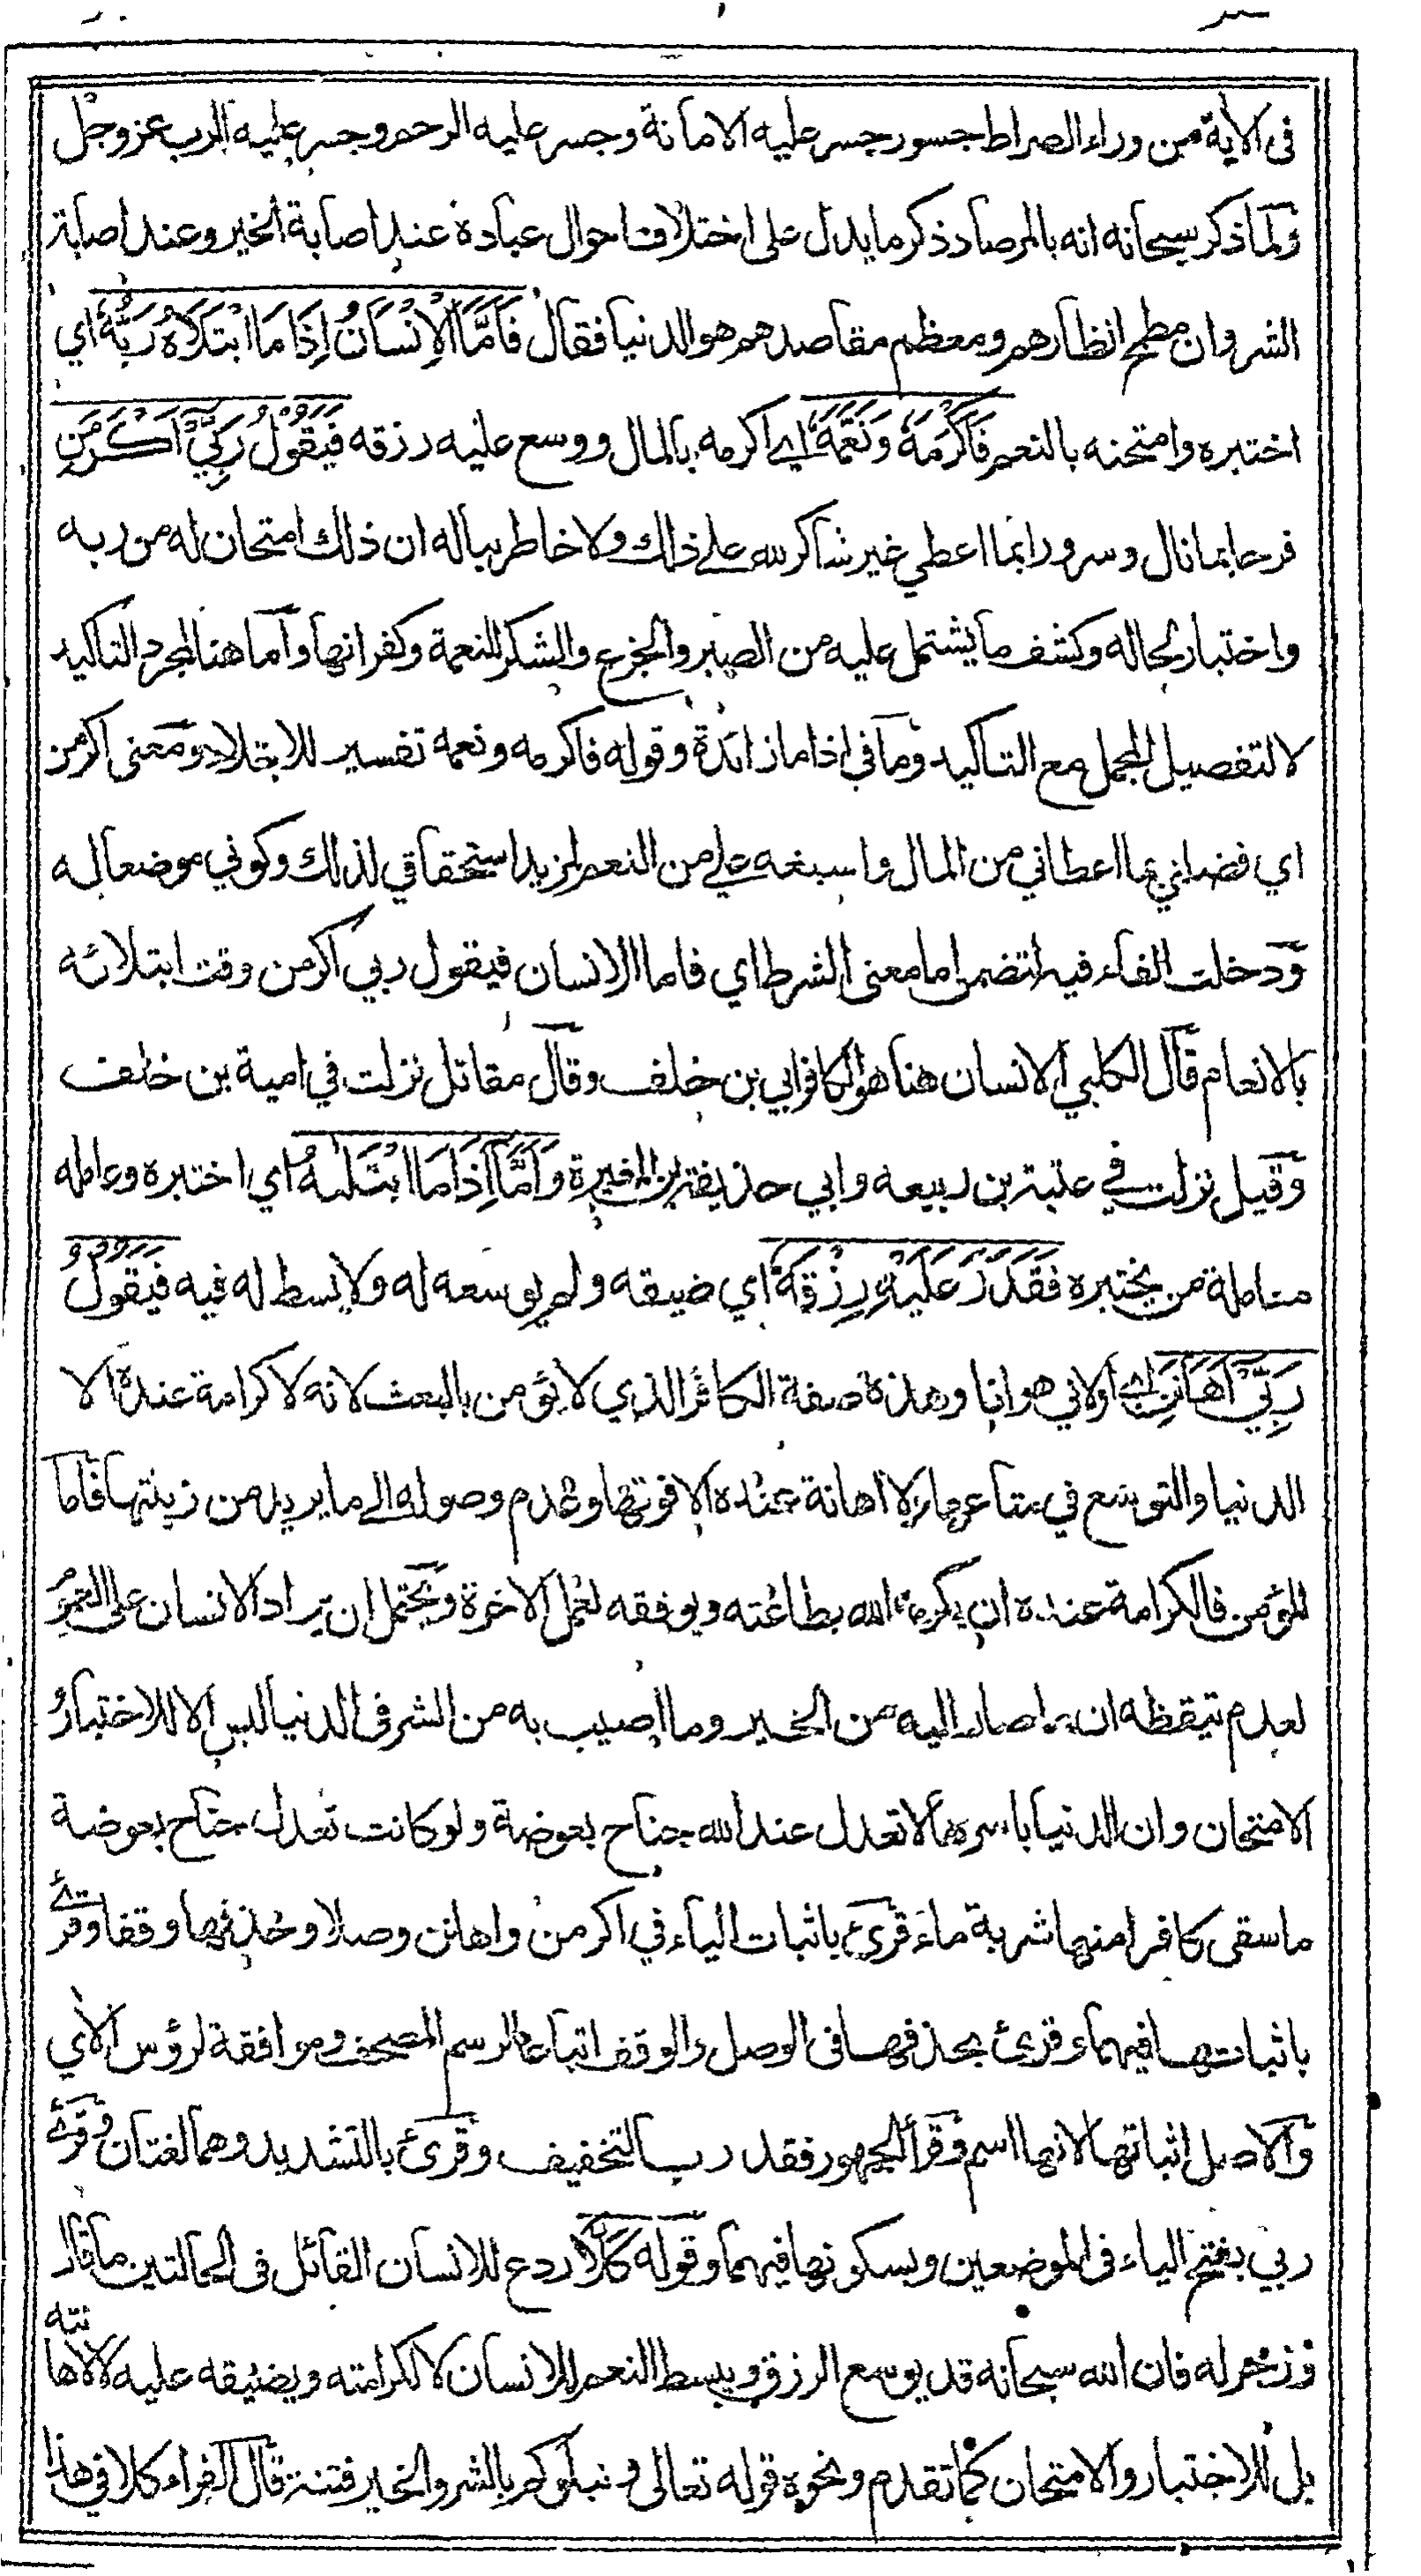 فى الاية من وراء الصراط جسور جسر عليه الامانة وجسر عليه الرحم وجسر عليه الرب عزوجل
ولما ذكر سبحانه انه بالمرصاد ذكر ما يدل على اختلاف احوال عباده عند اصابة الخير وعند اصابة
الشر وان مطمح انظارهم ومعظم مقاصدهم هو الدنيا فقال فَاَمَّا الْاِنْسَانُ اِذَا مَا ابْتَلَاهُ رَبُّهُ اي
اختبره وامتحنه بالنعم فَاَكْرَمَهُ وَنَعَّمَهُ اي اكرمه بالمال ووسع عليه رزقه فَيَقُوْلُ رَبِّيْ اَكْرَمَنِ
فرحا بما نال وسرورا بما اعطي غير شاكر لله على ذلك ولا خاطر بباله ان ذلك امتحان له من ربه
واختبار لحاله وكشف ما يشتمل عليه من الصبر والجزع والشكر للنعمة وكفرانها واما هنا لمجرد التاكيد
لا لتفصيل المجمل مع التاكيد وما في اذا ما زائدة وقوله فاكرمه ونعمه تفسير للابتلاء ومعنى اكرمن
اي فضلني بما اعطاني من المال واسبغه علي من النعم لمزيد استحقاقي لذلك وكوني موضعا له
ودخلت الفاء فيه لتضمن اما معنى الشرط اي فاما الانسان فيقول ربي اكرمن وقت ابتلائه
بالانعام قال الكلبي الانسان هنا هو الكافر ابي بن خلف وقال مقاتل نزلت في امية بن خلف
وقيل نزلت في عتبة بن ربيعه وابي حذيفة بن المغيرة وَاَمَّا اِذَا مَا ابْتَلٰىهُ اي اختبره وعامله
معاملة من يختبره فَقَدَرَ عَلَيْهِ رِزْقَهُ اي ضيقه ولم يوسعه له ولا بسط له فيه فَيَقُوْلُ
رَبِّيْ اَهَانَنِ اي اولاني هوانا وهذه صفة الكافر الذي لا يؤمن بالبعث لانه لا كرامة عنده الا
الدنيا والتوسع في متاعها ولا اهانة عنده الا فوتها وعدم وصوله الى ما يريد من زينتها فاما
المؤمن فالكرامة عنده ان يكرمه الله بطاعته ويوفقه لعمل الاخرة ويحتمل ان يراد الانسان على العموم
لعدم تيقظه ان ما صار اليه من الخير وما اصيب به من الشر فى الدنيا ليس الا للاختبار و
الامتحان وان الدنيا باسرها لا تعدل عند الله جناح بعوضة ولو كانت تعدل جناح بعوضة
ما سقى كافرا منها شربة ماء قرئ باثبات الياء في اكرمن واهانن وصلا وحذفها وقفا وقرئ
باثباتها فيهما وقرئ بحذفها فى الوصل والوقف اتباعا لرسم المصحف وموافقة لرؤس الاي
والاصل اثباتها لانها اسم وقرأ الجمهور فقدر بالتخفيف وقرئ بالتشديد وهما لغتان وقرئ
ربي بفتح الياء فى الموضعين وبسكونها فيهما وقوله كَلَّا ردع للانسان القائل فى الحالتين ما قال
وزجر له فان الله سبحانه قد يوسع الرزق ويبسط النعم للانسان لا لكرامته ويضيقه عليه لا لاهانته
بل للاختبار والامتحان كما تقدم ونحوه قوله تعالى ونبلوكم بالشر والخير فتنة قال الفراء كلا في هذا